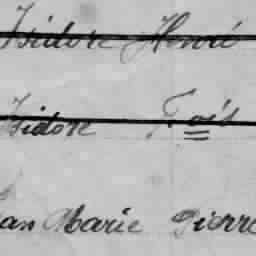 Isidore Henré
Isidore
ean Marie Pierre